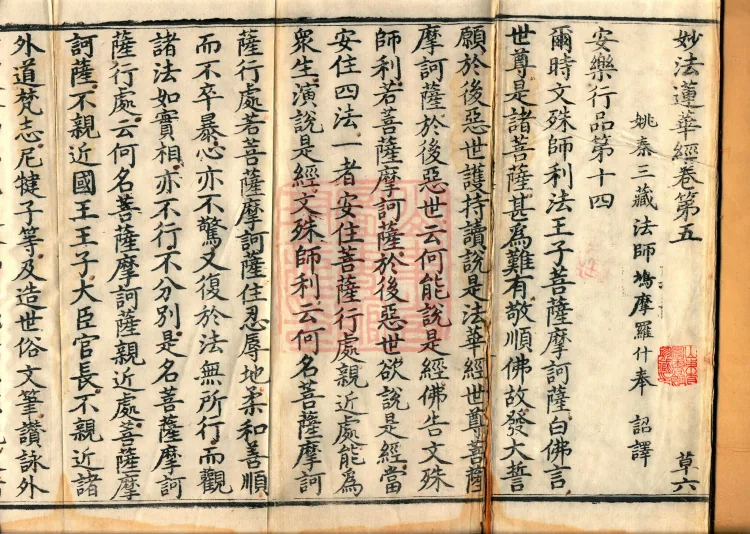 妙法蓮華經卷第五 草六
姚秦三藏法師鳩摩羅什奉 詔譯
安樂行品第十四
爾時文殊師利法王子菩薩摩訶薩白佛言
世尊是諸菩薩甚為難有敬順佛故發大誓
願於後惡世護持讀說是法華經世尊菩薩
摩訶薩於後惡世云何能說是經佛告文殊
師利若菩薩摩訶薩於後惡世欲說是經當
安住四法一者安住菩薩行處親近處能為
衆生演說是經文殊師利云何名菩薩摩訶
薩行處若菩薩摩訶薩住忍辱地柔和善順
而不卒暴心亦不驚又復於法無所行而觀
諸法如實相亦不行不分別是名菩薩摩訶
薩行處云何名菩薩摩訶薩親近處菩薩摩
訶薩不親近國王王子大臣官長不親近諸
外道梵志尼揵子等及造世俗文筆讚詠外